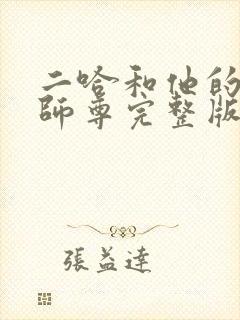 二哈和他的
師尊完整版
張益達